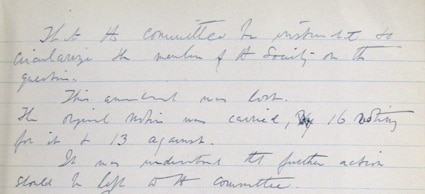 That the committee be instructed to
circularize the members of the Society on the
question.
This amendment was lost.
The original motion was carried, 16 voting
for it & 13 against.
It was understood tt further action
should be left to the committee.